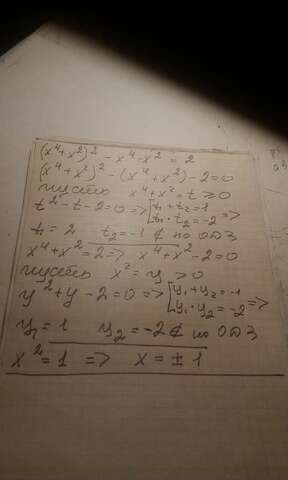 (x⁴+x²)² - x⁴-x² = 2
(x⁴+x²)² - (x⁴+x²) - 2=0
пусть x⁴+x²=t ≥0
t²-t-2=0 => [t₁+t₂=1
t₁·t₂=-2 =>
t₁=2 t₂=-1 ∉ по ОДЗ
x⁴+x²=2 => x⁴+x²-2=0
пусть x²=y >0
y²+y-2=0 => [y₁+y₂=-1
y₁·y₂=-2 =>
y₁=1 y₂=-2 ∉ по ОДЗ
x²=1 => x=±1